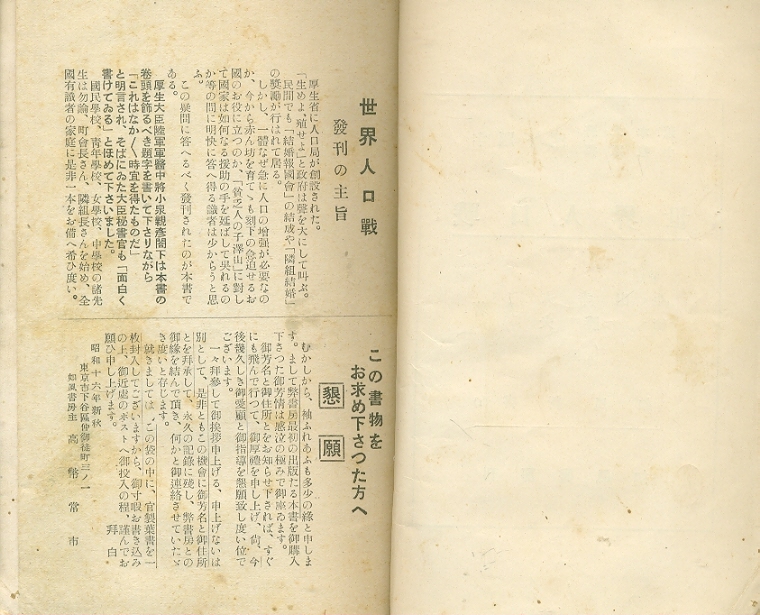 世界人口戰
發刊の主旨
厚生省に人口局が創設された。
「生めよ、殖せよ」と政府は聲を大にして叫ぶ。
民間でも「結婚報國會」の結成や「隣組結婚」
の奬勵が行はれて居る。
しかし、一體なぜ急に人口の增强が必要なの
か、今から赤ん坊を育てゝも刻下の急迫せるお
國のお役に立つのか、「貧乏人の子澤山」に對し
て國家は如何なる援助の手を延ばして吳れるの
か等の問に明快に答へ得る識者は少からうと思
ふ。
この疑問に答へるべく發刊されたのが本書で
ある。
厚生大臣陸軍軍醫中將小泉親彥閣下は本書の
卷頭を飾るべき題字を書いて下さりながら
「これはなか〳〵時宜を得たものだ」
と明言され、そばにゐた大臣秘書官も「面白く
書けてゐる」とほめて下さいました。
國民學校、靑年學校、女學校、中學校の諸先
生は勿論、町會長さん、隣組長さんを始め、全
國有識者の家庭に是非一本をお備へ希ひ度い。
この書物を
お求め下さつた方へ
懇願
むかしから、袖ふれあふも多少の緣と申しま
す。まして弊書房最初の出版たる本書を御購入
下さつた御芳情は感泣の極みで御座ゐます。
御芳名と御住所とをお知らせ下されば、すぐ
にも飛んで行つて、御厚禮を申し上げ、尙、今
後幾久しき御愛顧と御指導を懇願致し度い位で
ございます。
一々拜參して御挨拶申上げる、申上げないは
別として、是非ともこの機會に御芳名と御住所
とを拜承して、永久の記錄に殘し、弊書房との
御緣を結んで頂き、何かと御連絡させていたゞ
き度いと存じます。
就きましては、この袋の中に、官製葉書を一
枚封入してございますから、御寸暇お書き込み
の上、御近處のポストへ御投入の程、謹んでお
願ひ申し上げます。
拜白
昭和十六年初秋
東京市下谷區仲御徒町三ノ一
書房主 高幣常市